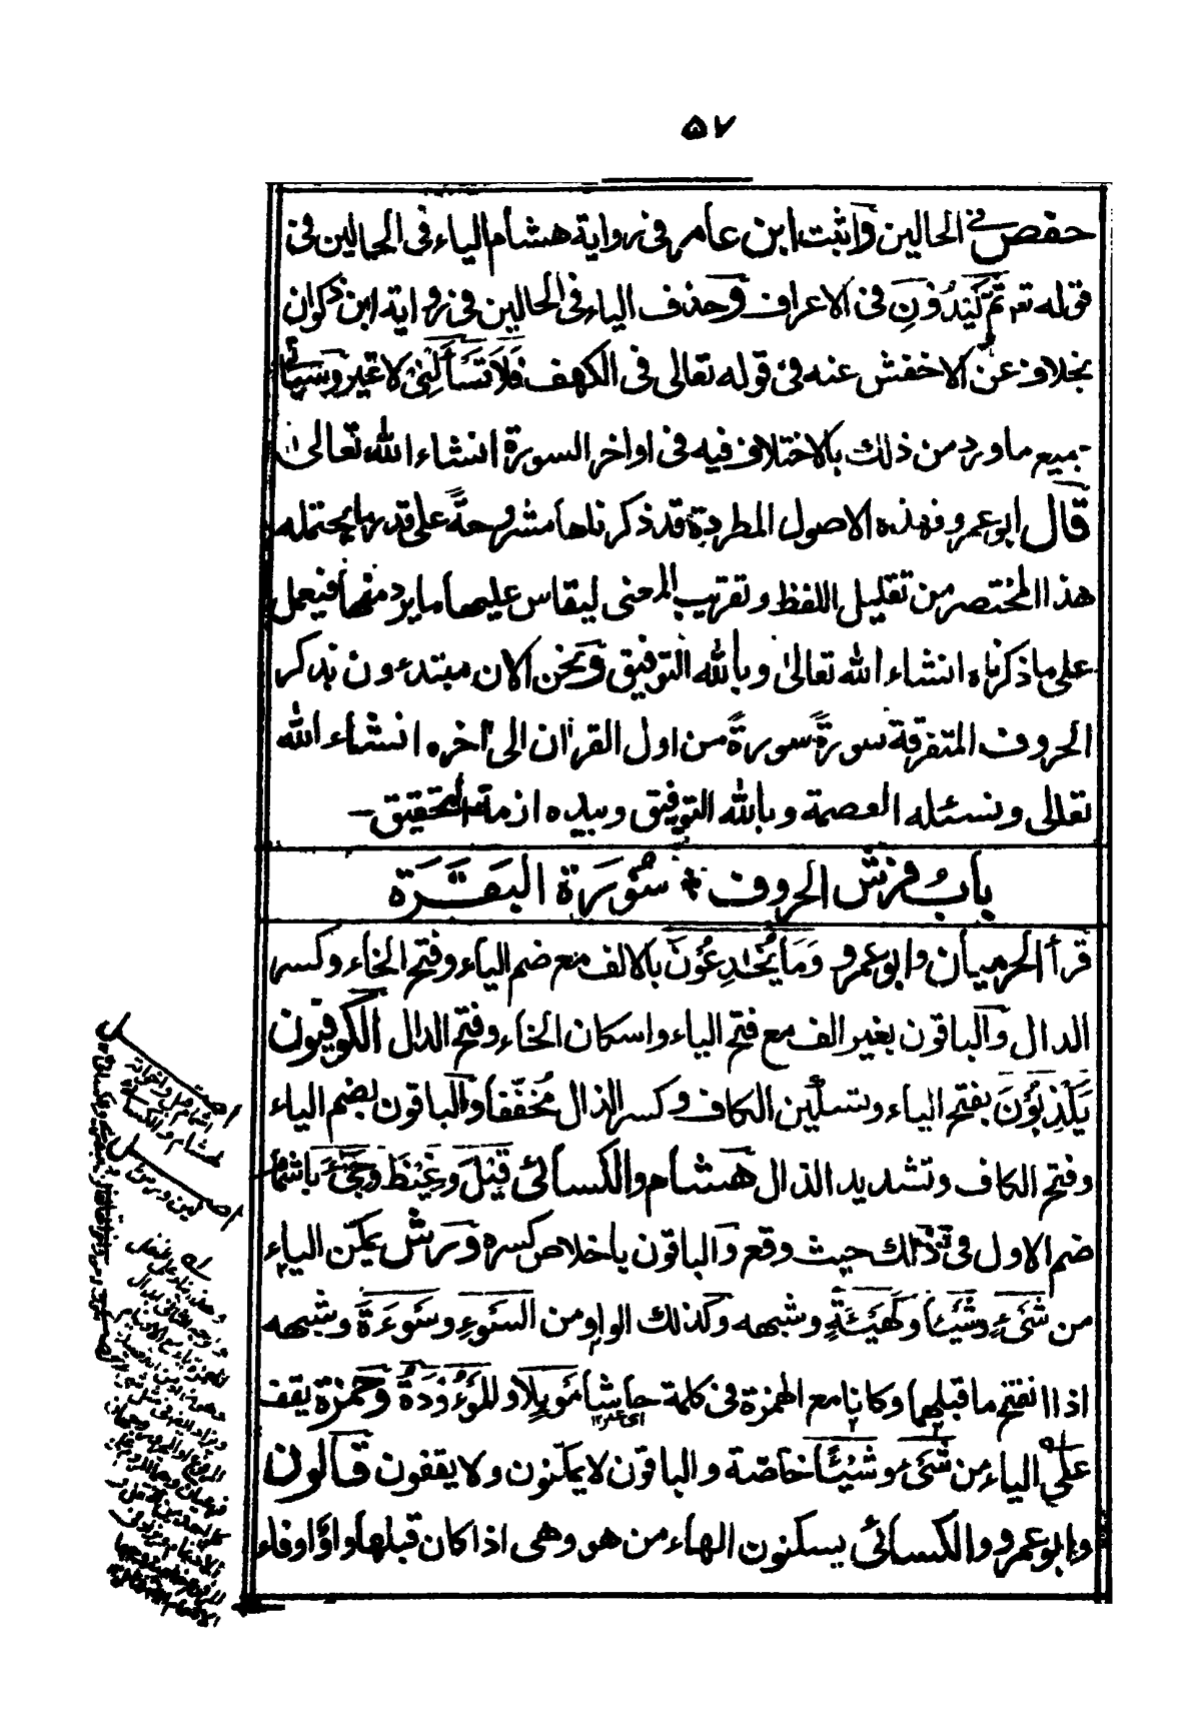 ۵۷
حفص فى الحالين وَاثبت ابن عامر فى رواية هشام الياء فى الحالين فى
قوله تع ثُمَّ كِيْدُوْنِ فى الاعراف وَحذف الياء فى الحالين فى رواية ابن ذكوان
بخلاف عن الاخفش عنه فى قوله تعالى فى الكهف فَلَا تَسْأَلَنِّىْ لا غير وَسيأتى
جميع ما ورد من ذلك بالاختلاف فيه فى اواخر السورة انشاء الله تعالىٰ
قَال ابو عمرو فهذه الاصول المطردة قد ذكرناها مشروحةً على قدر ما يحتمله
هذا المختصر من تقليل اللفظ وتقريب المعنى ليقاس عليها ما يرد منها فيعمل
على ما ذكرناه انشاء الله تعالىٰ وبالله التوفيق وَنحن الان مبتدءون بذكر
الحروف المتفرقة سورةً سورةً من اول القرآن الى اٰخره انشاء الله
تعالى ونسئله العصمة وبالله التوفيق وبيده ازمة التحقيق-
بابُ فرش الحروف * سُوْرَة البَقَرَة
قرأ الحرميان وابو عمرو وَمَا يُخٰدِعُوْنَ بالالف مع ضم الياء وفتح الخاء وكسر
الدال وَالباقون بغير الف مع فتح الياء واسكان الخاء وفتح الدال الكوفيون
يَكْذِبُوْنَ بفتح الياء وتسكين الكاف وكسر الذال مُخَفَّفاً وَالباقون بضم الياء
وفتح الكاف وتشديد الذال هشام والكسائى قِيْلَ وَغِيْضَ وَجِىْءَ باشمام
ضم الاول فى ذٰلك حيث وقع وَالباقون باخلاص كسره وَرش يمكّن الياء
من شَىْءٍ وَشَيْئًا وكَهَيْئَةِ وشبهه وَكذلك الواو من السَّوْءِ وسَوْءَةَ وشبهه
اذا انفتح ما قبلهما وكانا مع الهمزة فى كلمة حاشا مَوْئِلًا وللْمَوْءُوْدَةُ وَحمزة يقف
على الياء من شَىْءٍ وشَيْئًا خاصّة والباقون لا يمكّنون ولا يقفون قَالون
وابو عمرو والكسائى يسكنون الهاء من هو وهى اذا كان قبلها واوٌ او فاء